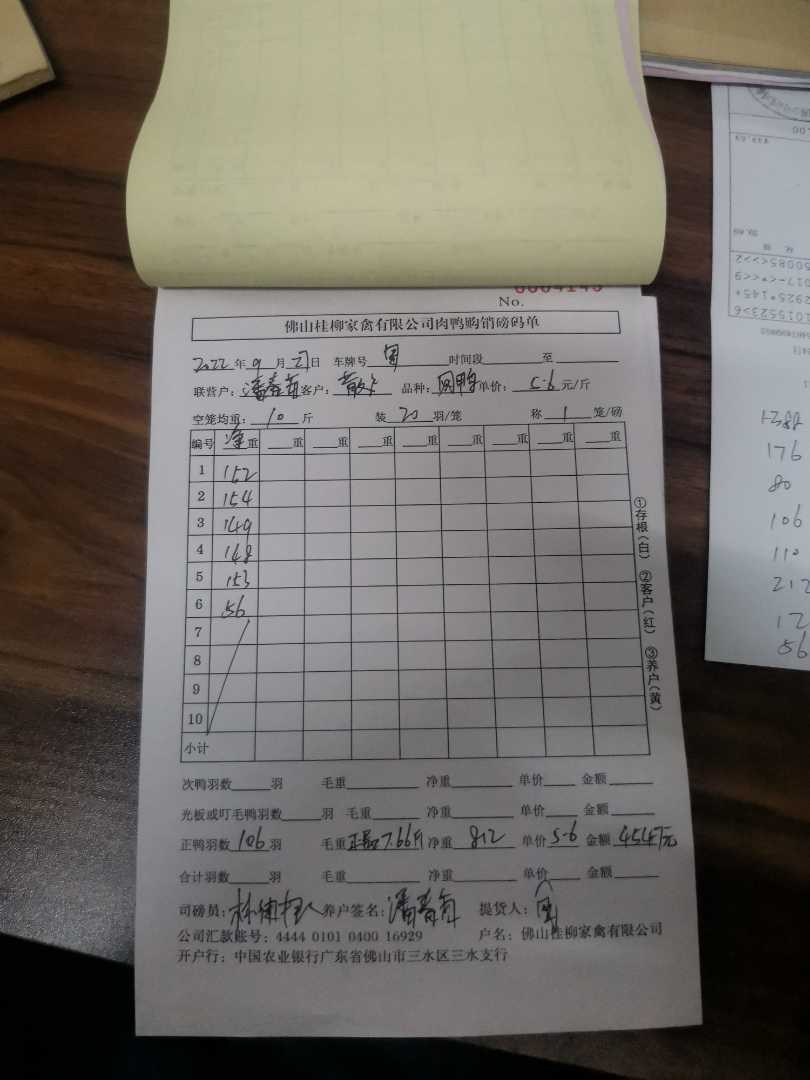 No.
佛山桂柳家禽有限公司肉鸭购销磅码单
2022年9月27日 车牌号 时间段 至
联营户: 潘春苟 客户: 散 品种: 肉鸭 单价: 5.6 元/斤
空笼均重: 10 斤 装 20 羽/笼 称 1 笼/磅
编号 净重 重 重 重 重 重 重 重 重
1 152
2 154
3 149
4 148
5 153
6 56
7
8
9
10
小计
①存根(白) ②客户(红) ③养户(黄)
次鸭羽数 羽 毛重 净重 单价 金额
光板或叮毛鸭羽数 羽 毛重 净重 单价 金额
正鸭羽数 106 羽 毛重 7.66斤 净重 812 单价 5.6 金额 4547元
合计羽数 羽 毛重 净重 单价 金额
司磅员: 养户签名: 潘春 提货人:
公司汇款账号: 4444 0101 0400 16929 户名: 佛山桂柳家禽有限公司
开户行: 中国农业银行广东省佛山市三水区三水支行
176
80
106
110
212
12
56